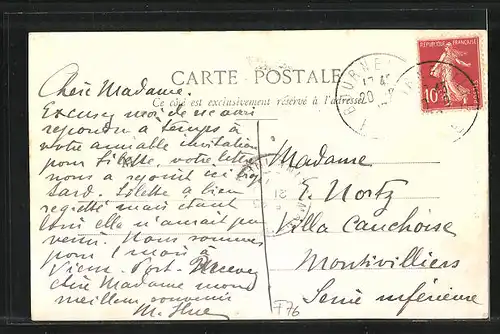 CARTE POSTALE
Ce côté est exclusivement réservé à l'adresse
RÉPUBLIQUE FRANÇAISE
10
17 45
20
21
Chère Madame.
Excusez moi de ne avoir
répondre à temps à
votre aimable invitation
pour Lilette, votre lettre
nous a rejoint ici trop
tard. Lilette a bien
regretté mais étant
loin elle n'aurait pu
venir. Nous sommes
pour 1 mois à
Vieux-Port
chère Madame mon
meilleur souvenir
M. Hue
Madame
E. Nortz
Villa Cauchoise
Montivilliers
Seine inférieure
F76